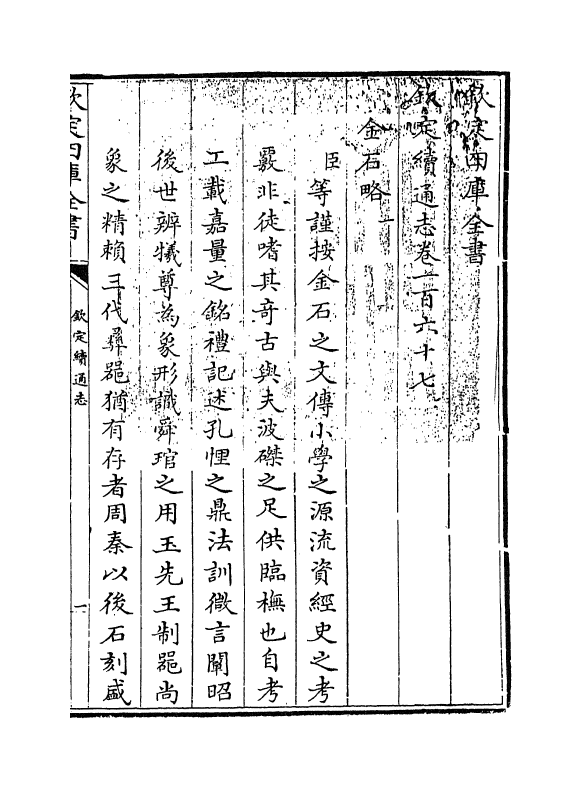 欽定四庫全書
欽定續通志卷一百六十七
金石略
臣等謹按金石之文傳小學之源流資經史之考
覈非徒嗜其奇古與夫波磔之足供臨橅也自考
工載嘉量之銘禮記述孔悝之鼎法訓微言闡昭
後世辨犧尊為象形識舜琯之用玉先王制器尚
象之精賴三代彝器猶有存者周秦以後石刻盛
欽定四庫全書
欽定續通志
一